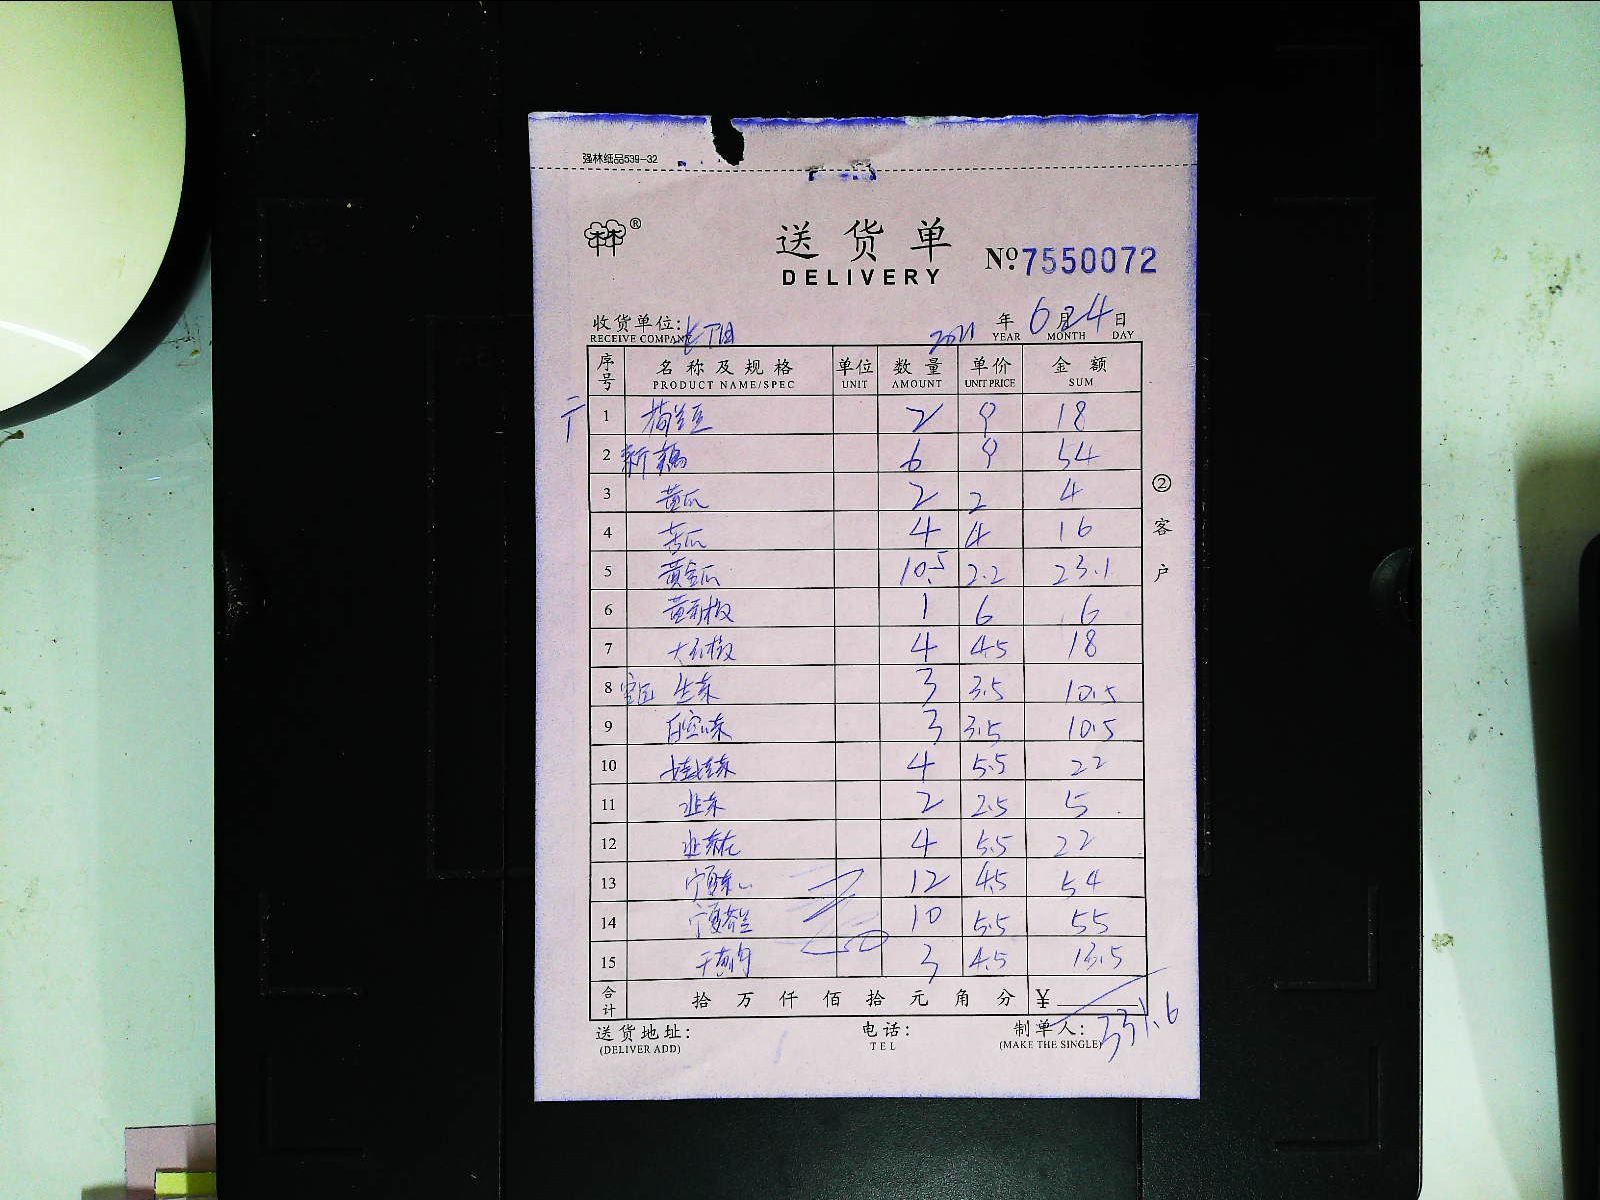 强林纸品539-32
®
送货单
DELIVERY
Nº 7550072
收货单位: 2021 年 6 月 24 日
RECEIVE COMPANY YEAR MONTH DAY
序号 名称及规格 单位 数量 单价 金额
PRODUCT NAME/SPEC UNIT AMOUNT UNIT PRICE SUM
1 荷兰豆 2 9 18
2 新藕 6 9 54
3 黄瓜 2 2 4
4 苦瓜 4 4 16
5 黄金瓜 10.5 2.2 23.1
6 黄彩椒 1 6 6
7 大红椒 4 4.5 18
8 生菜 3 3.5 10.5
9 3 3.5 10.5
10 娃娃菜 4 5.5 22
11 韭菜 2 2.5 5
12 韭菜花 4 5.5 22
13 宁夏菜心 12 4.5 54
14 宁夏芥兰 10 5.5 55
15 3 4.5 13.5
合计 拾 万 仟 佰 拾 元 角 分 ¥ 331.6
送货地址: 电话: 制单人:
(DELIVER ADD) TEL (MAKE THE SINGLE)
② 客户